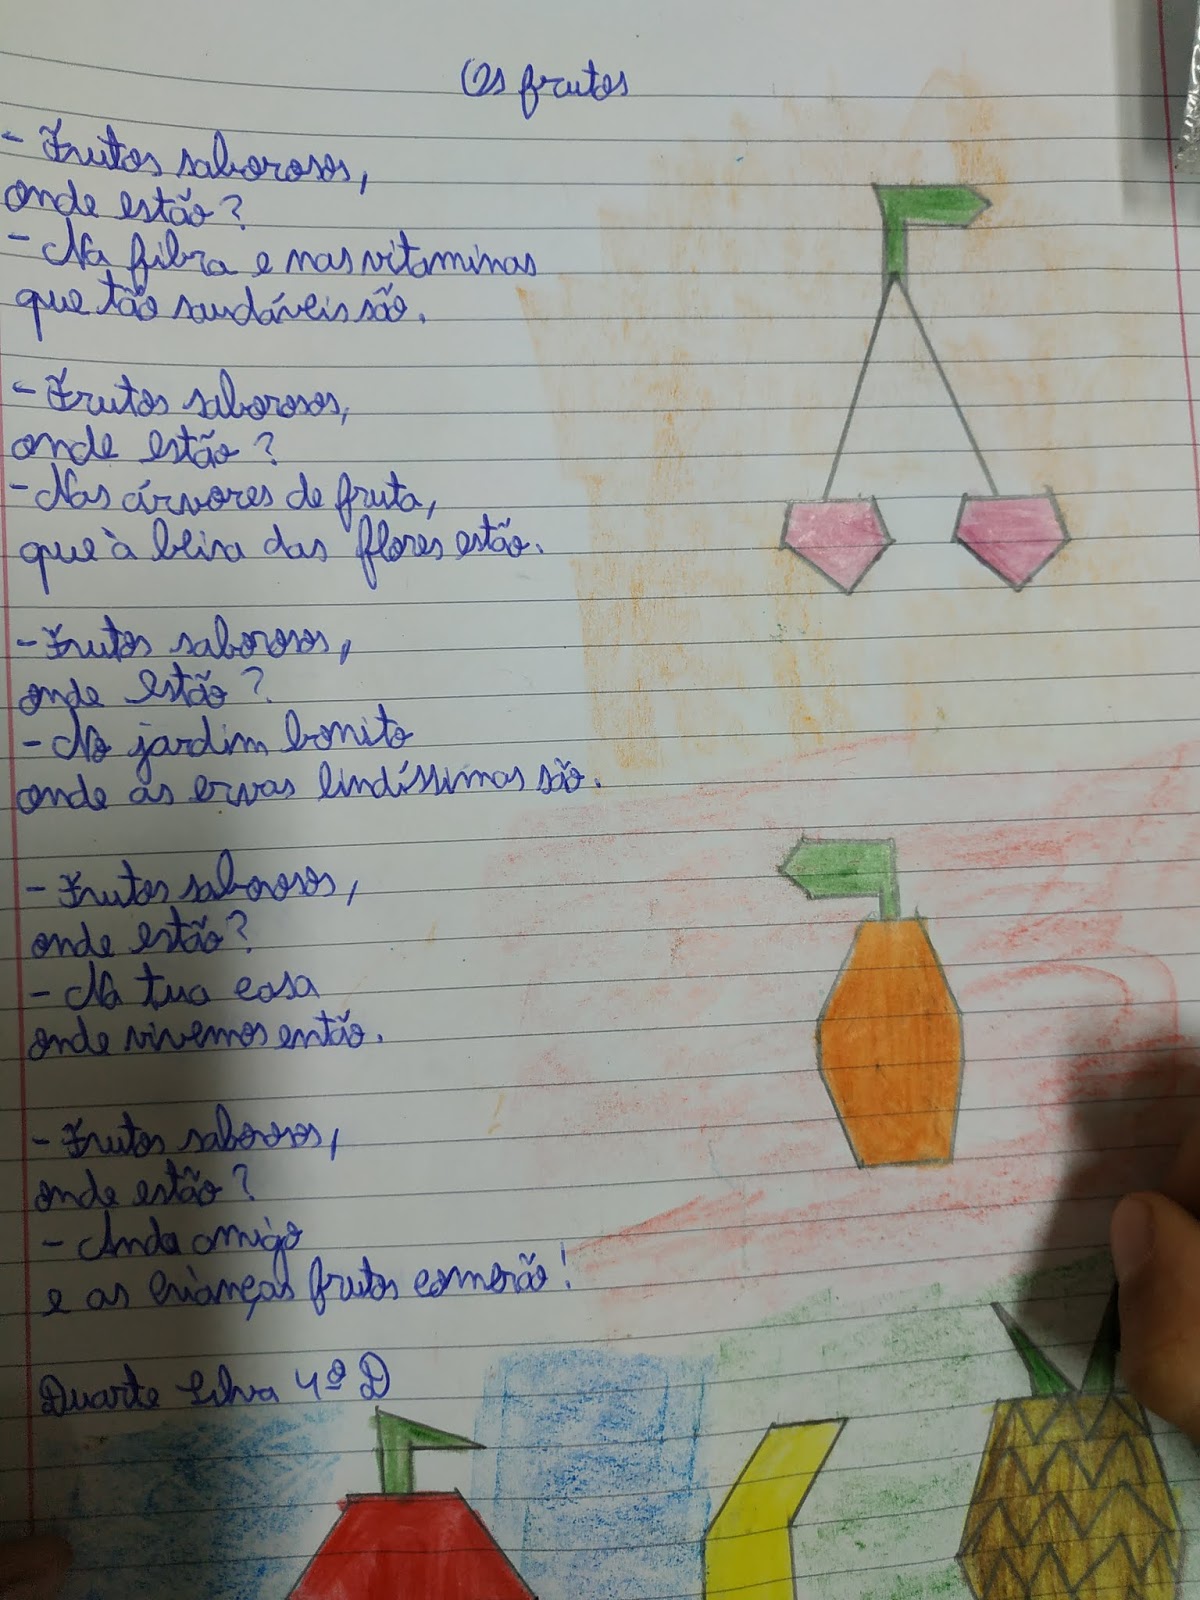 Os frutos
- Frutos saborosos,
onde estão?
- Na fibra e nas vitaminas
que tão saudáveis são.
- Frutos saborosos,
onde estão?
- Nas árvores de fruta,
que à beira das flores estão.
- Frutos saborosos,
onde estão?
- No jardim bonito
onde as ervas lindíssimas são.
- Frutos saborosos,
onde estão?
- Na tua casa
onde vivemos então.
- Frutos saborosos,
onde estão?
- Anda amigo
e as crianças frutos comerão!
Duarte Silva 4º D